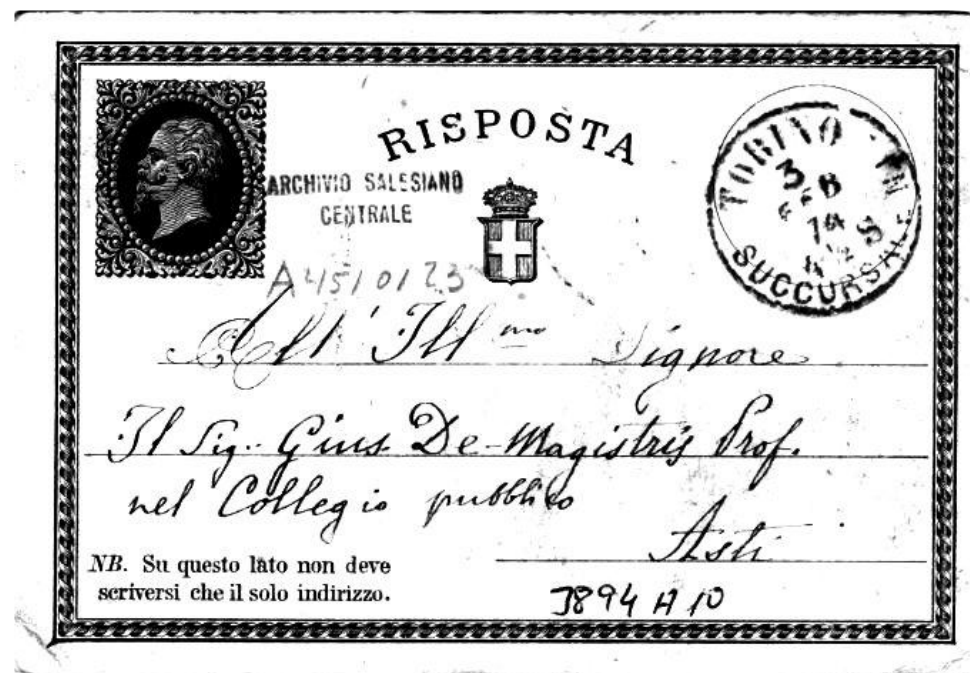 RISPOSTA
ARCHIVIO SALESIANO
CENTRALE
A4510123
TORINO
3 FEB
SUCCURSALE
All' Ill mo Signore
Il Sig. Gius. De-Magistris Prof.
nel Collegio pubblico
Asti
NB. Su questo lato non deve
scriversi che il solo indirizzo.
3894 A 10